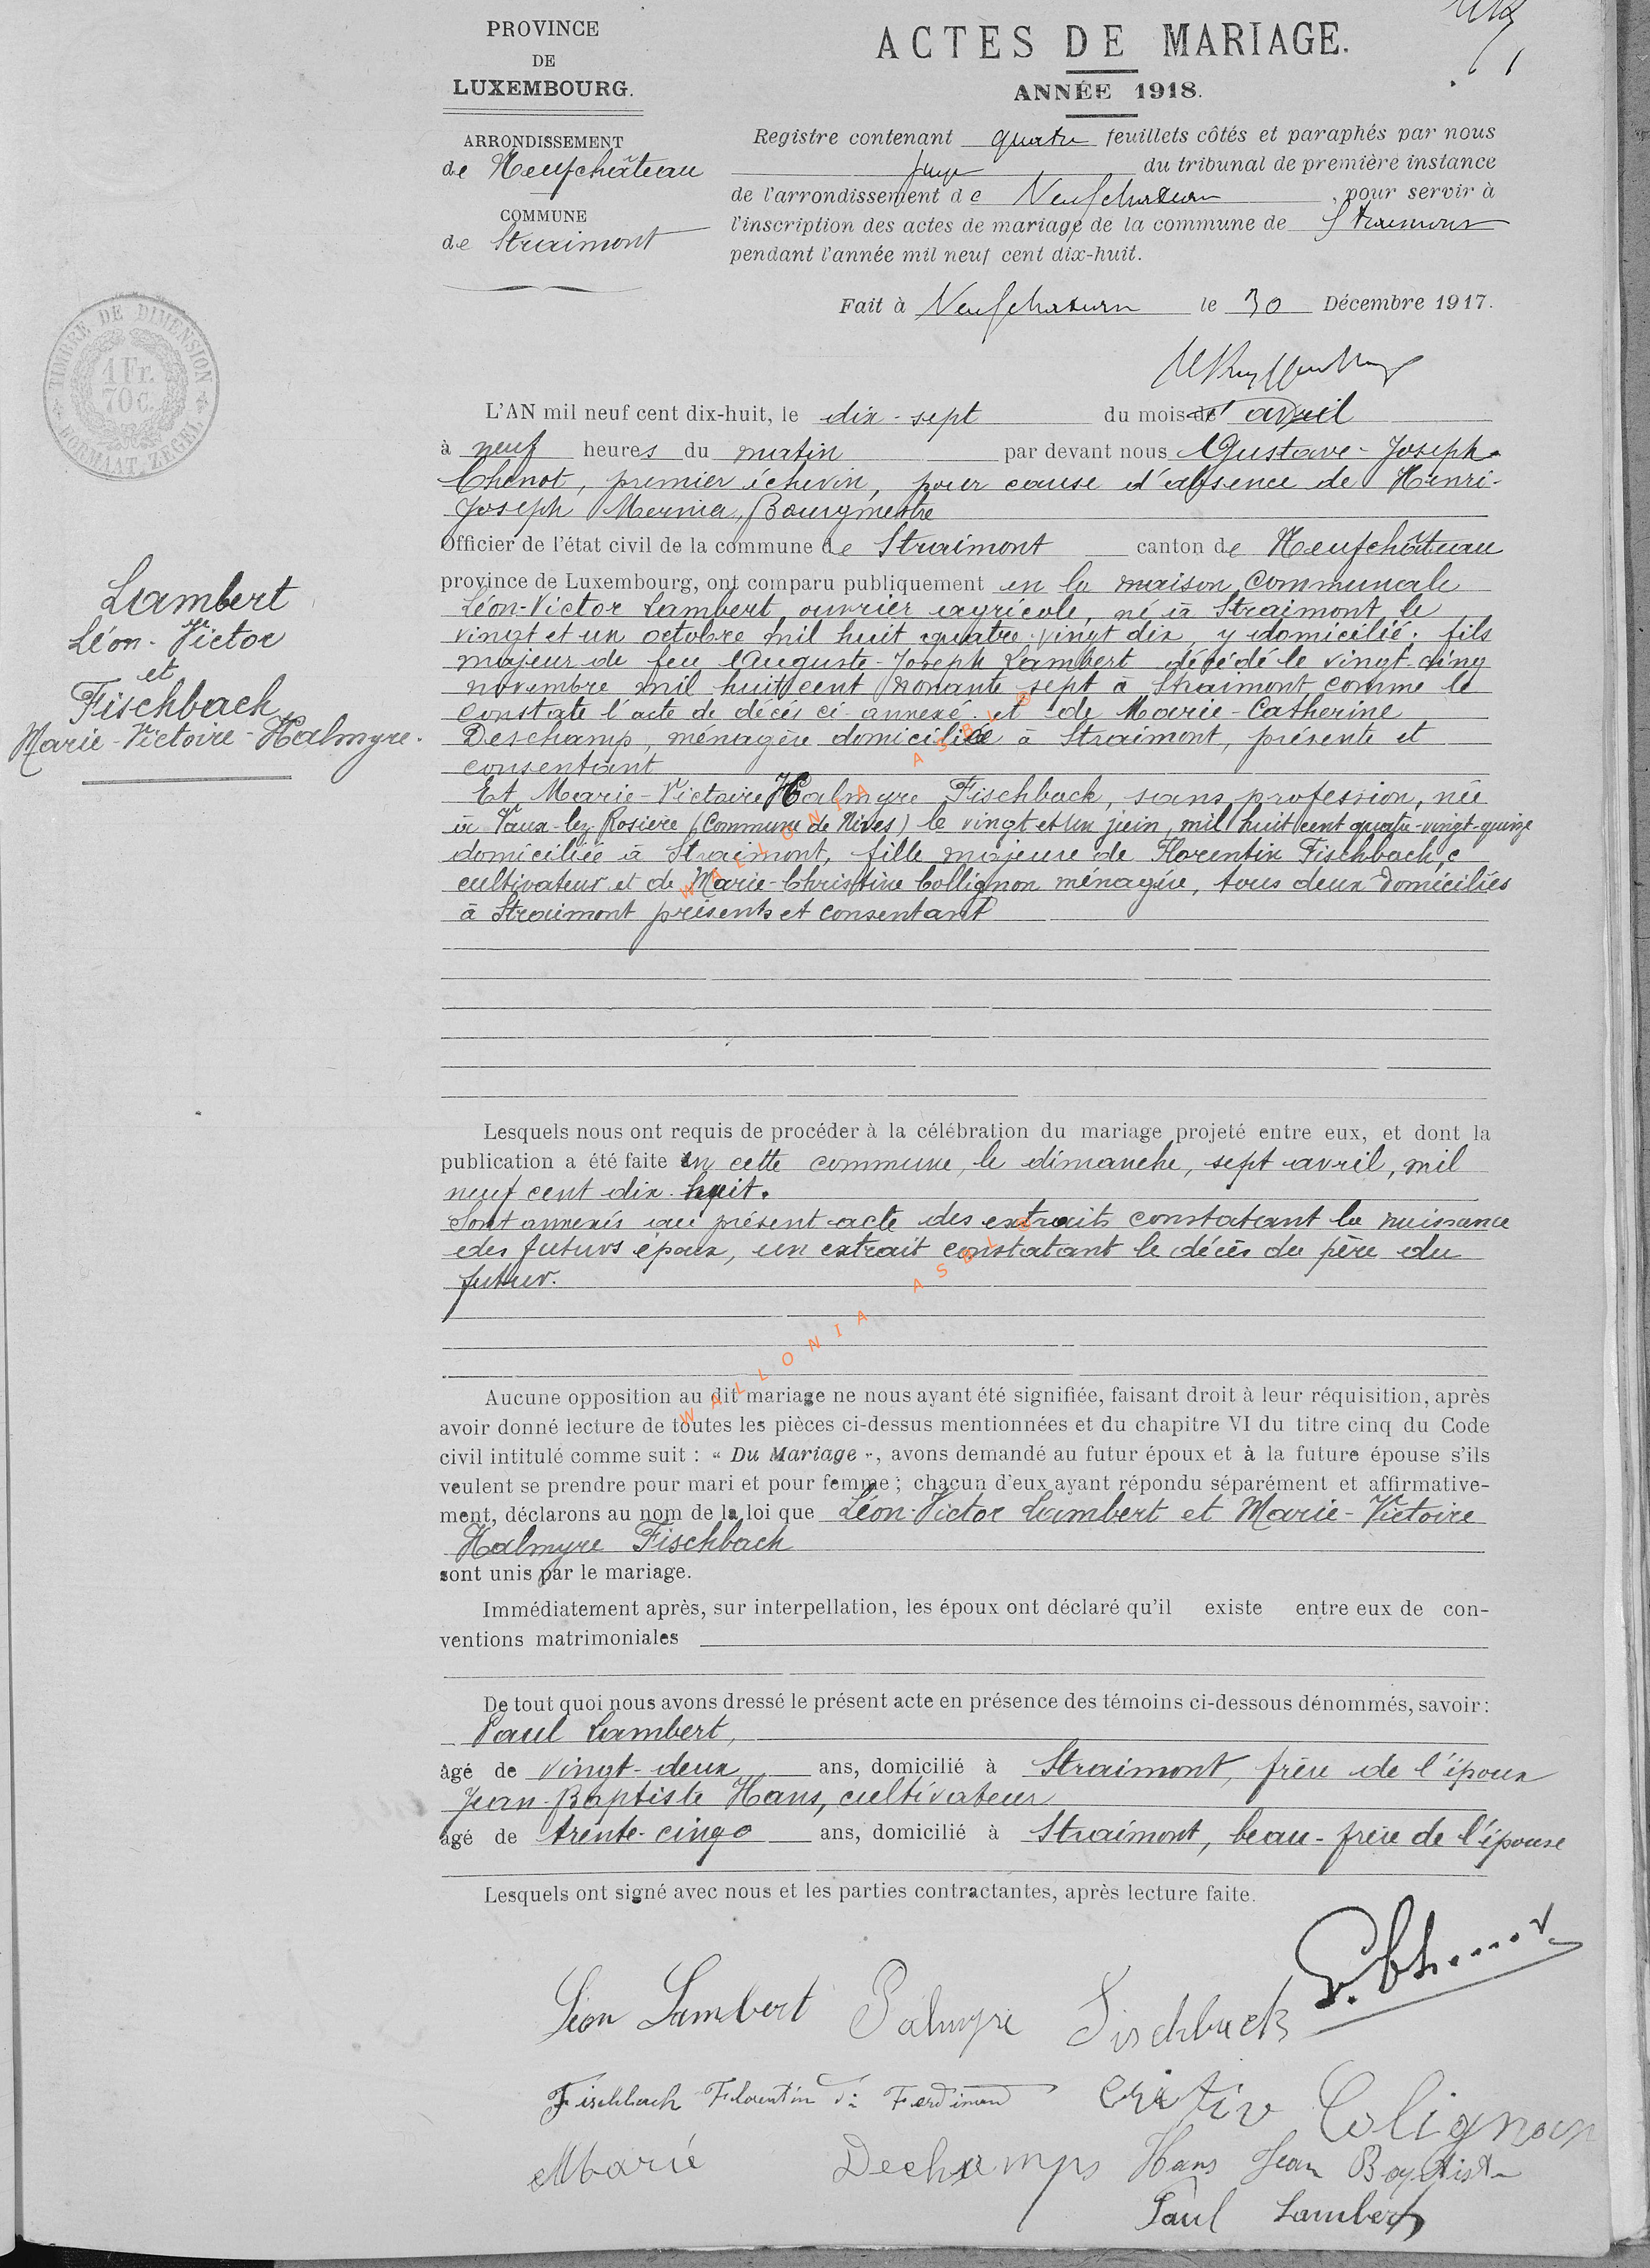 PROVINCE
DE
LUXEMBOURG.
ARRONDISSEMENT
de Neufchâteau
COMMUNE
de Straimont
ACTES DE MARIAGE.
ANNÉE 1918.
Registre contenant quatre feuillets côtés et paraphés par nous
juge du tribunal de première instance
de l'arrondissement de Neufchateau, pour servir à
l'inscription des actes de mariage de la commune de Straimont
pendant l'année mil neuf cent dix-huit.
Fait à Neufchateau le 30 Décembre 1917.
TIMBRE DE DIMENSION
1 Fr.
70 C.
FORMAAT ZEGEL
Lambert
Léon-Victor
et
Fischbach
Marie-Victoire-Halmyre.
L'AN mil neuf cent dix-huit, le dix-sept du mois d'avril
à neuf heures du matin par devant nous Gustave-Joseph
Chenot, premier échevin, pour cause d'absence de Henri-
Joseph Mernier, Bourgmestre
Officier de l'état civil de la commune de Straimont canton de Neufchâteau
province de Luxembourg, ont comparu publiquement en la maison communale
Léon-Victor Lambert, ouvrier agricole, né à Straimont, le
vingt et un octobre mil huit quatre-vingt dix, y domicilié, fils
majeur de feu Auguste-Joseph Lambert décédé le vingt-cinq
novembre mil huit cent nonante sept à Straimont comme le
constate l'acte de décès ci-annexé et de Marie-Catherine
Deschamp, ménagère domiciliée à Straimont, présente et
consentant
Et Marie-Victoire Halmyre Fischbach, sans profession, née
à Vaux-lez-Rosière (Commune de Nives) le vingt et un juin, mil huit cent quatre-vingt-quinze
domiciliée à Straimont, fille majeure de Florentin Fischbach,
cultivateur et de Marie-Christine Collignon ménagère, tous deux domiciliés
à Straimont présents et consentant
Lesquels nous ont requis de procéder à la célébration du mariage projeté entre eux, et dont la
publication a été faite en cette commune, le dimanche, sept avril, mil
neuf cent dix-huit.
Sont annexés au présent acte des extraits constatant la naissance
des futurs époux, un extrait constatant le décès du père du
futur.
Aucune opposition au dit mariage ne nous ayant été signifiée, faisant droit à leur réquisition, après
avoir donné lecture de toutes les pièces ci-dessus mentionnées et du chapitre VI du titre cinq du Code
civil intitulé comme suit : « Du Mariage », avons demandé au futur époux et à la future épouse s'ils
veulent se prendre pour mari et pour femme ; chacun d'eux ayant répondu séparément et affirmative-
ment, déclarons au nom de la loi que Léon-Victor Lambert et Marie-Victoire
Halmyre Fischbach
sont unis par le mariage.
Immédiatement après, sur interpellation, les époux ont déclaré qu'il existe entre eux de con-
ventions matrimoniales
De tout quoi nous avons dressé le présent acte en présence des témoins ci-dessous dénommés, savoir :
Paul Lambert,
âgé de vingt-deux ans, domicilié à Straimont, frère de l'époux
Jean-Baptiste Hans, cultivateur
âgé de trente-cinq ans, domicilié à Straimont, beau-frère de l'épouse
Lesquels ont signé avec nous et les parties contractantes, après lecture faite.
Léon Lambert Palmyre Fischbach
Fischbach Florentin Ferdinand Colignon
Marie Dechamps Hans Jean Baptiste
Paul Lambert
WALLONIA ASBL
WALLONIA ASBL